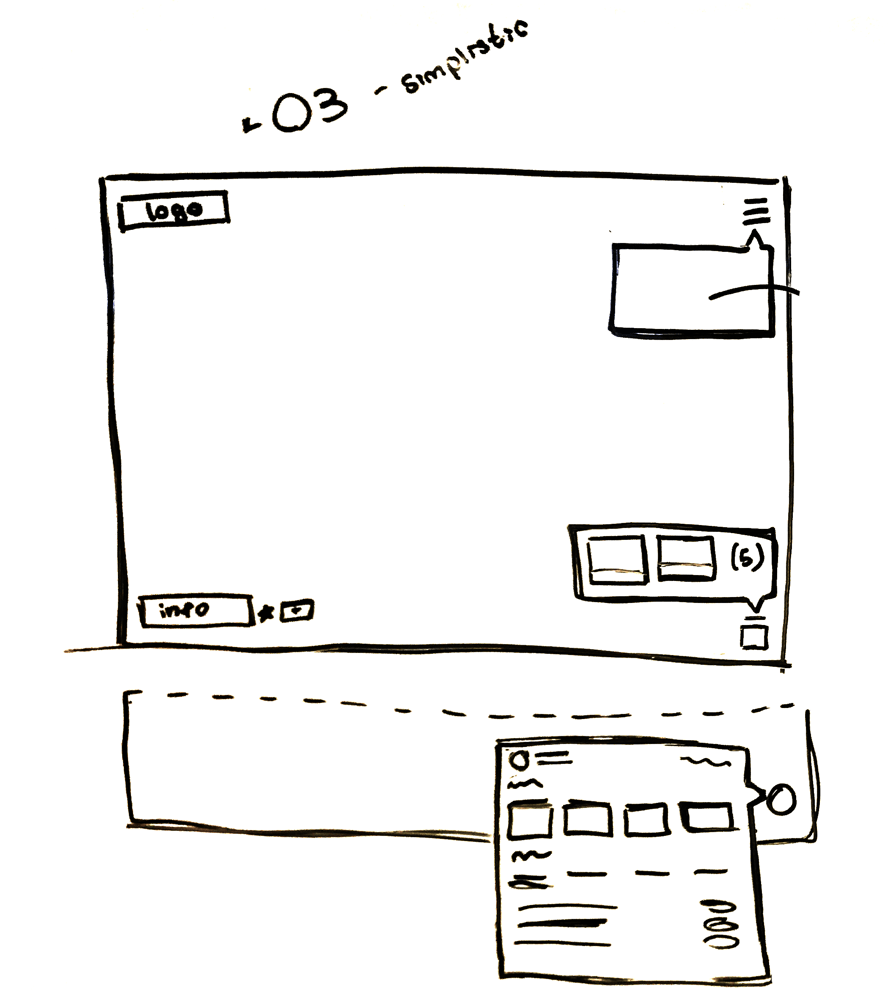 03 - simplistic
logo
(5)
info